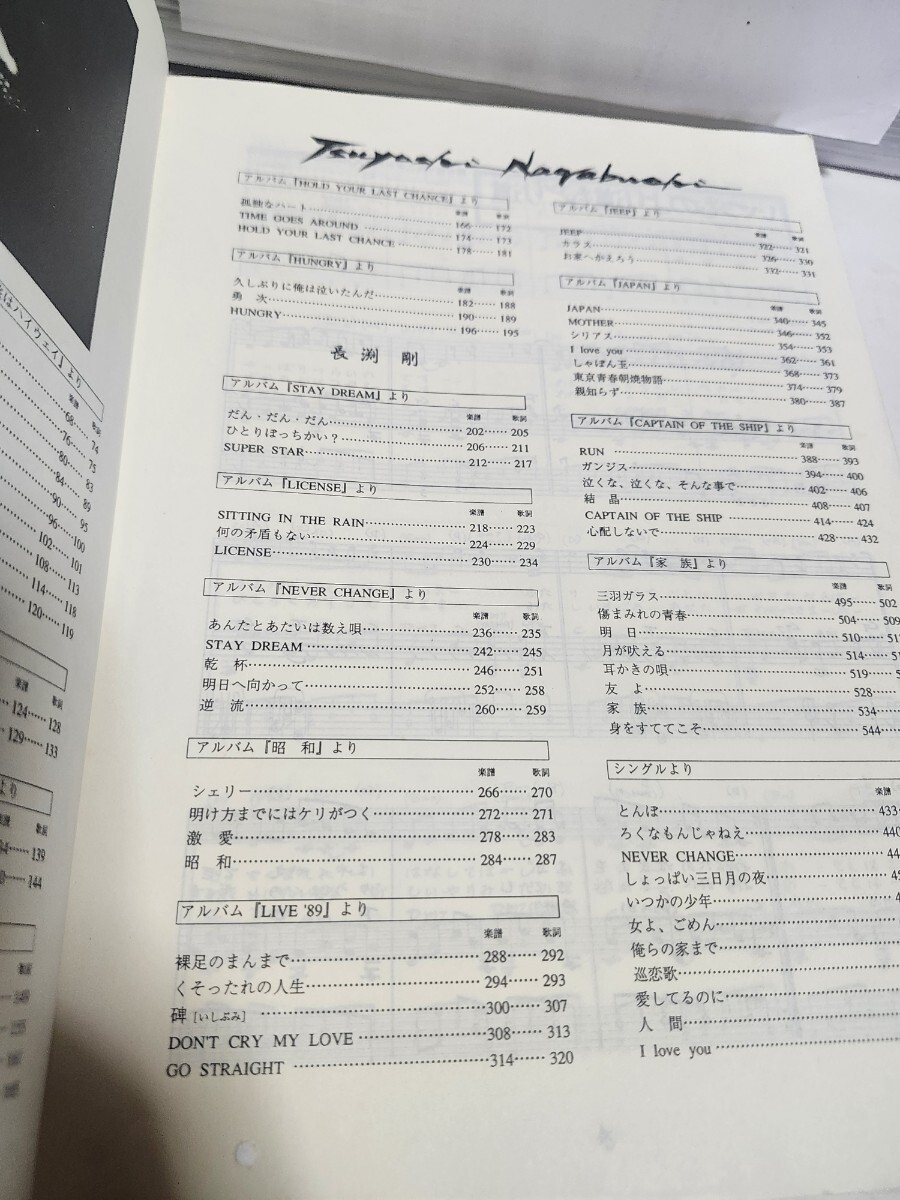 Tsuyoshi Nagabuchi
アルバム『HOLD YOUR LAST CHANCE』より
楽譜 歌詞
孤独なハート 166 172
TIME GOES AROUND 174 173
HOLD YOUR LAST CHANCE 178 181
アルバム『HUNGRY』より
楽譜 歌詞
久しぶりに俺は泣いたんだ 182 188
勇 次 190 189
HUNGRY 196 195
長渕 剛
アルバム『STAY DREAM』より
楽譜 歌詞
だん・だん・だん 202 205
ひとりぼっちかい? 206 211
SUPER STAR 212 217
アルバム『LICENSE』より
楽譜 歌詞
SITTING IN THE RAIN 218 223
何の矛盾もない 224 229
LICENSE 230 234
アルバム『NEVER CHANGE』より
楽譜 歌詞
あんたとあたいは数え唄 236 235
STAY DREAM 242 245
乾 杯 246 251
明日へ向かって 252 258
逆 流 260 259
アルバム『昭 和』より
楽譜 歌詞
シェリー 266 270
明け方までにはケリがつく 272 271
激 愛 278 283
昭 和 284 287
アルバム『LIVE '89』より
楽譜 歌詞
裸足のまんまで 288 292
くそったれの人生 294 293
碑[いしぶみ] 300 307
DON'T CRY MY LOVE 308 313
GO STRAIGHT 314 320
アルバム『JEEP』より
楽譜 歌詞
JEEP 322 321
カラス 326 330
お家へかえろう 332 331
アルバム『JAPAN』より
楽譜 歌詞
JAPAN 340 345
MOTHER 346 352
シリアス 354 353
I love you 362 361
しゃぼん玉 368 373
東京青春朝焼物語 374 379
親知らず 380 387
アルバム『CAPTAIN OF THE SHIP』より
楽譜 歌詞
RUN 388 393
ガンジス 394 400
泣くな、泣くな、そんな事で 402 406
結 晶 408 407
CAPTAIN OF THE SHIP 414 424
心配しないで 428 432
アルバム『家 族』より
楽譜 歌詞
三羽ガラス 495 502
傷まみれの青春 504 509
明 日 510
月が吠える 514
耳かきの唄 519
友 よ 528
家 族 534
身をすててこそ 544
シングルより
楽譜
とんぼ 433
ろくなもんじゃねえ 440
NEVER CHANGE
しょっぱい三日月の夜
いつかの少年
女よ、ごめん
俺らの家まで
巡恋歌
愛してるのに
人 間
I love you
はハイウェイ』より
歌詞
68 74
76 75
80 83
84 89
90 95
96 100
102 101
108 113
114 118
120 119
楽譜 歌詞
124 128
129 133
より
楽譜 歌詞
139
144